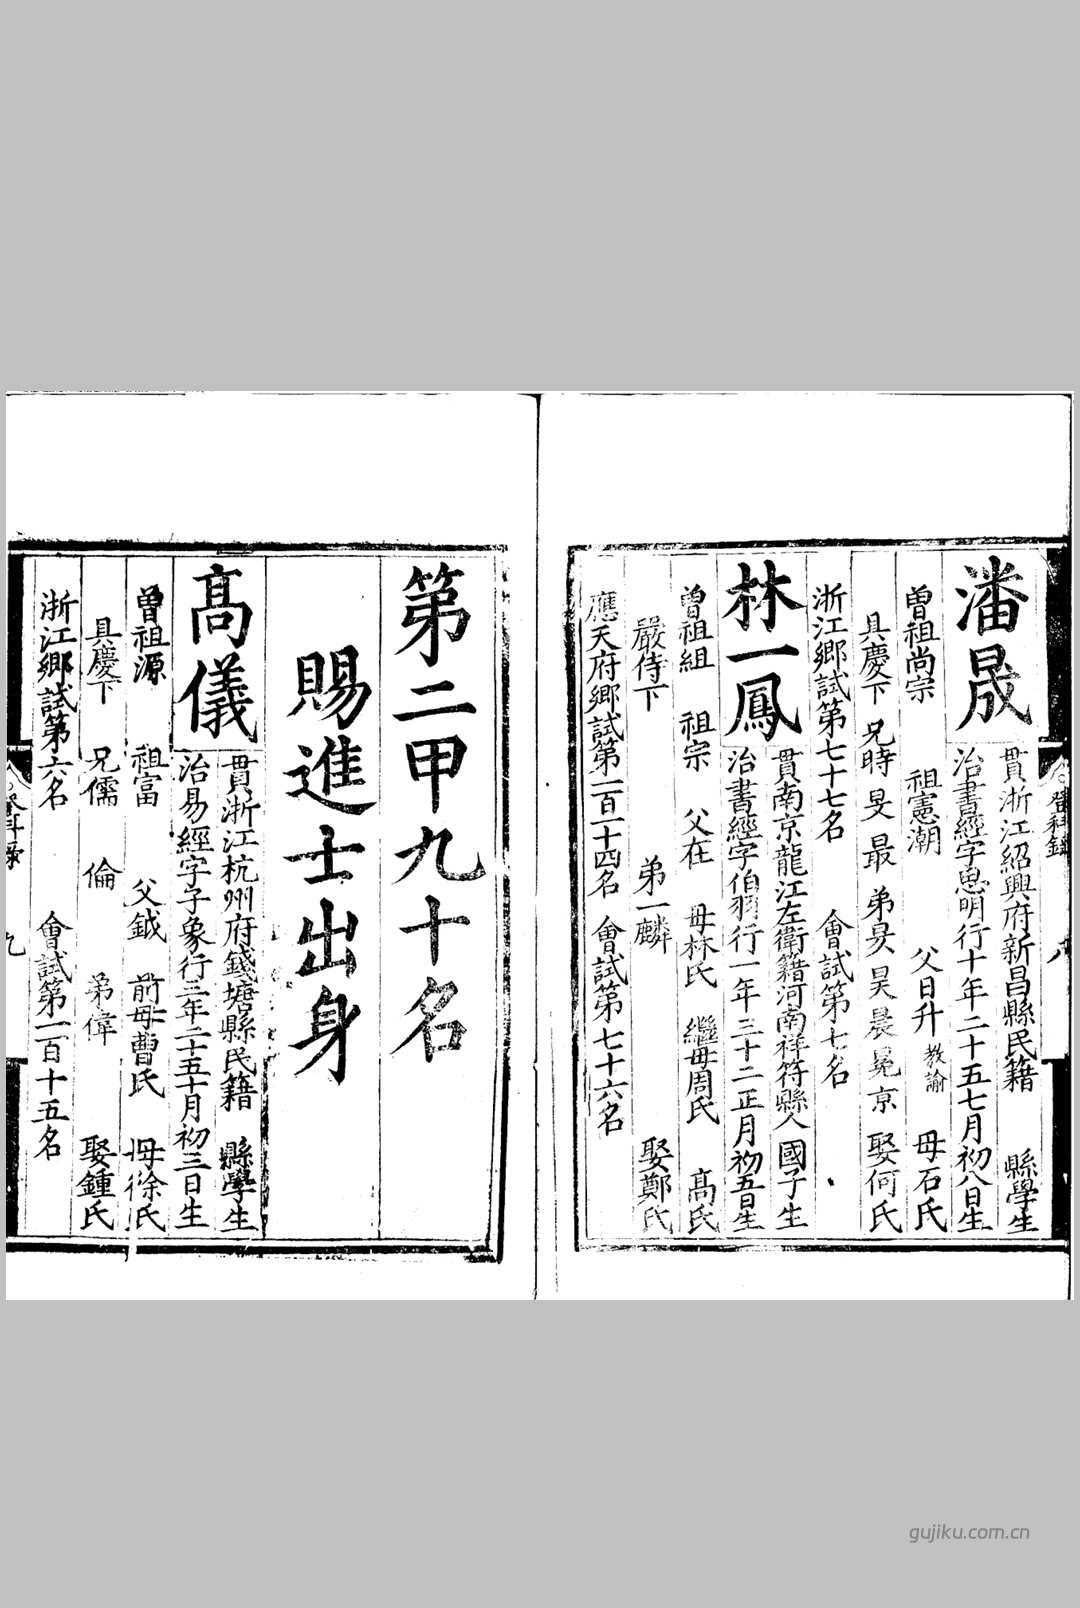 潘晟
貫浙江紹興府新昌縣民籍 縣學生
治書經字思明行十年二十五七月初八日生
曾祖尚宗 祖憲潮 父日升 教諭 母石氏
具慶下 兄時 旻 最 弟昃 昊 晨 冕 京 娶何氏
浙江鄉試第七十七名 會試第七名
林一鳳
貫南京龍江左衛籍河南祥符縣人 國子生
治書經字伯羽行一年三十二正月初五日生
曾祖組 祖宗 父在 母林氏 繼母周氏 髙氏
嚴侍下 弟一麟 娶鄭氏
應天府鄉試第一百二十四名 會試第七十六名
第二甲九十名
賜進士出身
髙儀
貫浙江杭州府錢塘縣民籍 縣學生
治易經字子象行三年二十五十月初三日生
曾祖源 祖富 父鉞 前母曹氏 母徐氏
具慶下 兄儒 倫 弟偉 娶鍾氏
浙江鄉試第六名 會試第一百十五名
登科錄 八
登科錄 九
gujiku.com.cn